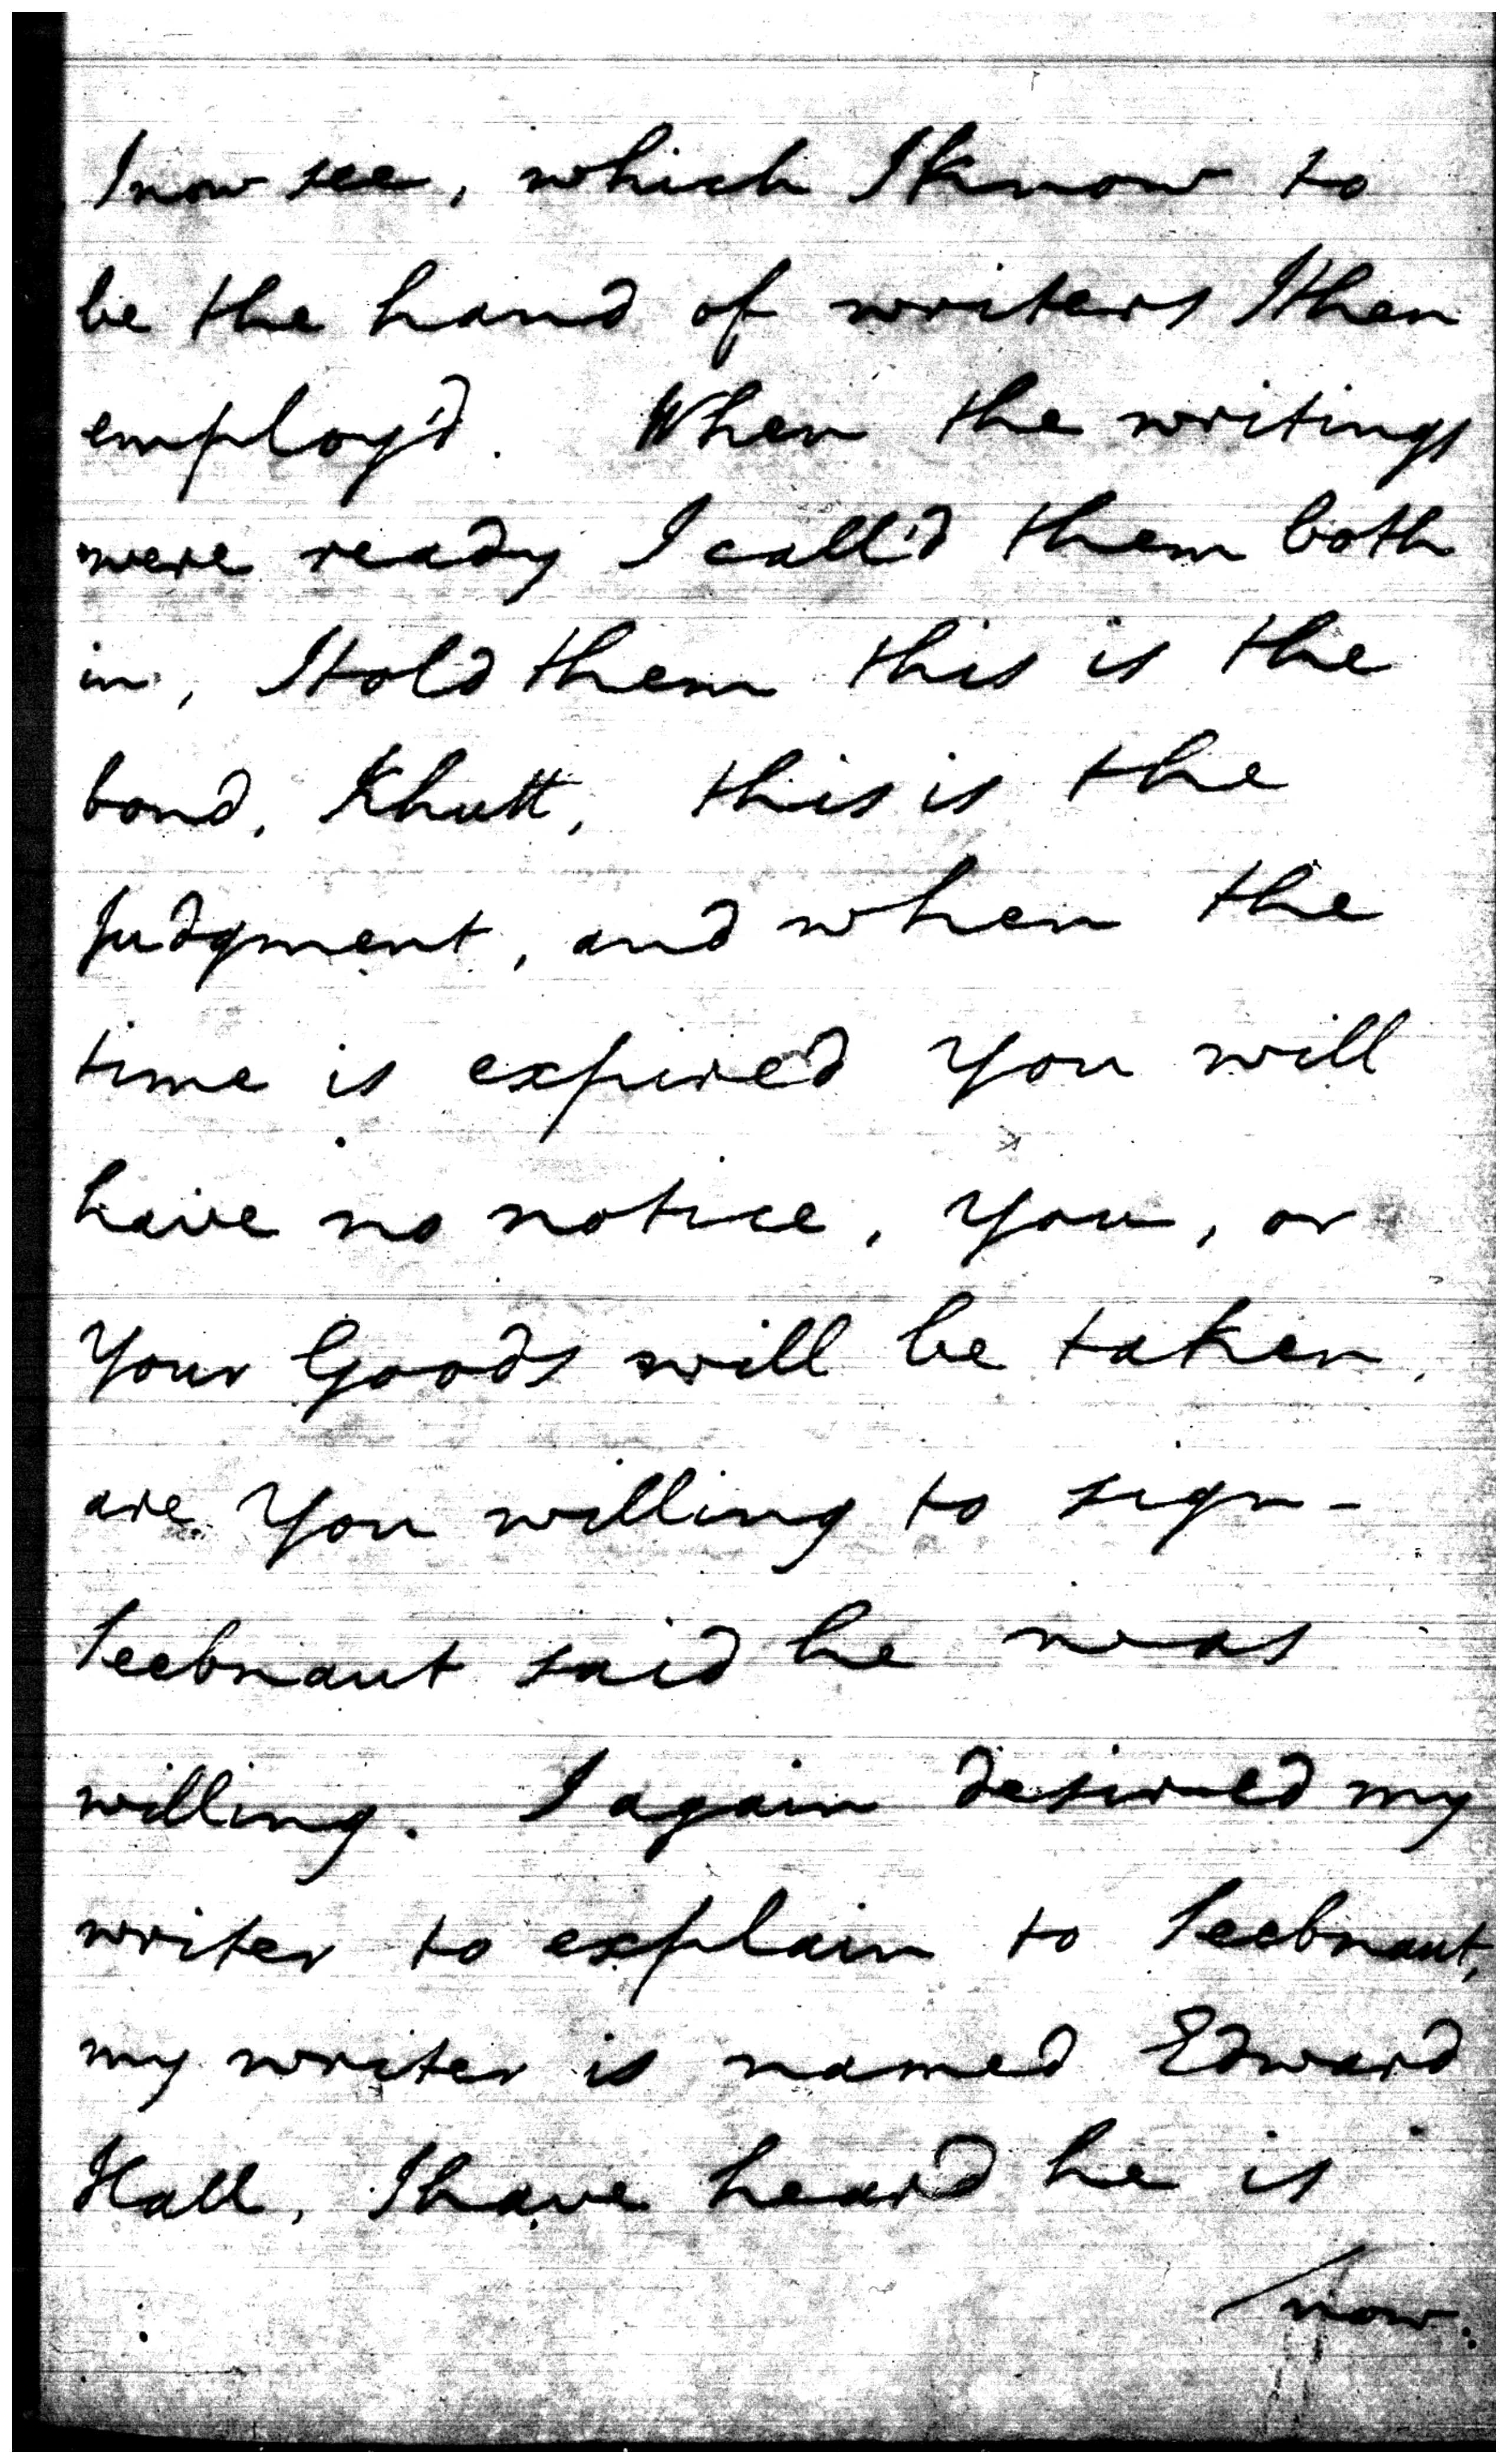 I now see, which I know to
be the hand of writers I then
employ'd. When the writings
were ready I call'd them both
in, I told them this is the
bond, Khutt, this is the
Judgment, and when the
time is expired You will
have no notice, You, or
Your Goods will be taken,
are You willing to sign -
Seebnaut said he was
willing. I again desired my
writer to explain to Seebnaut,
my writer is named Edward
Hall, I have heard he is
now.